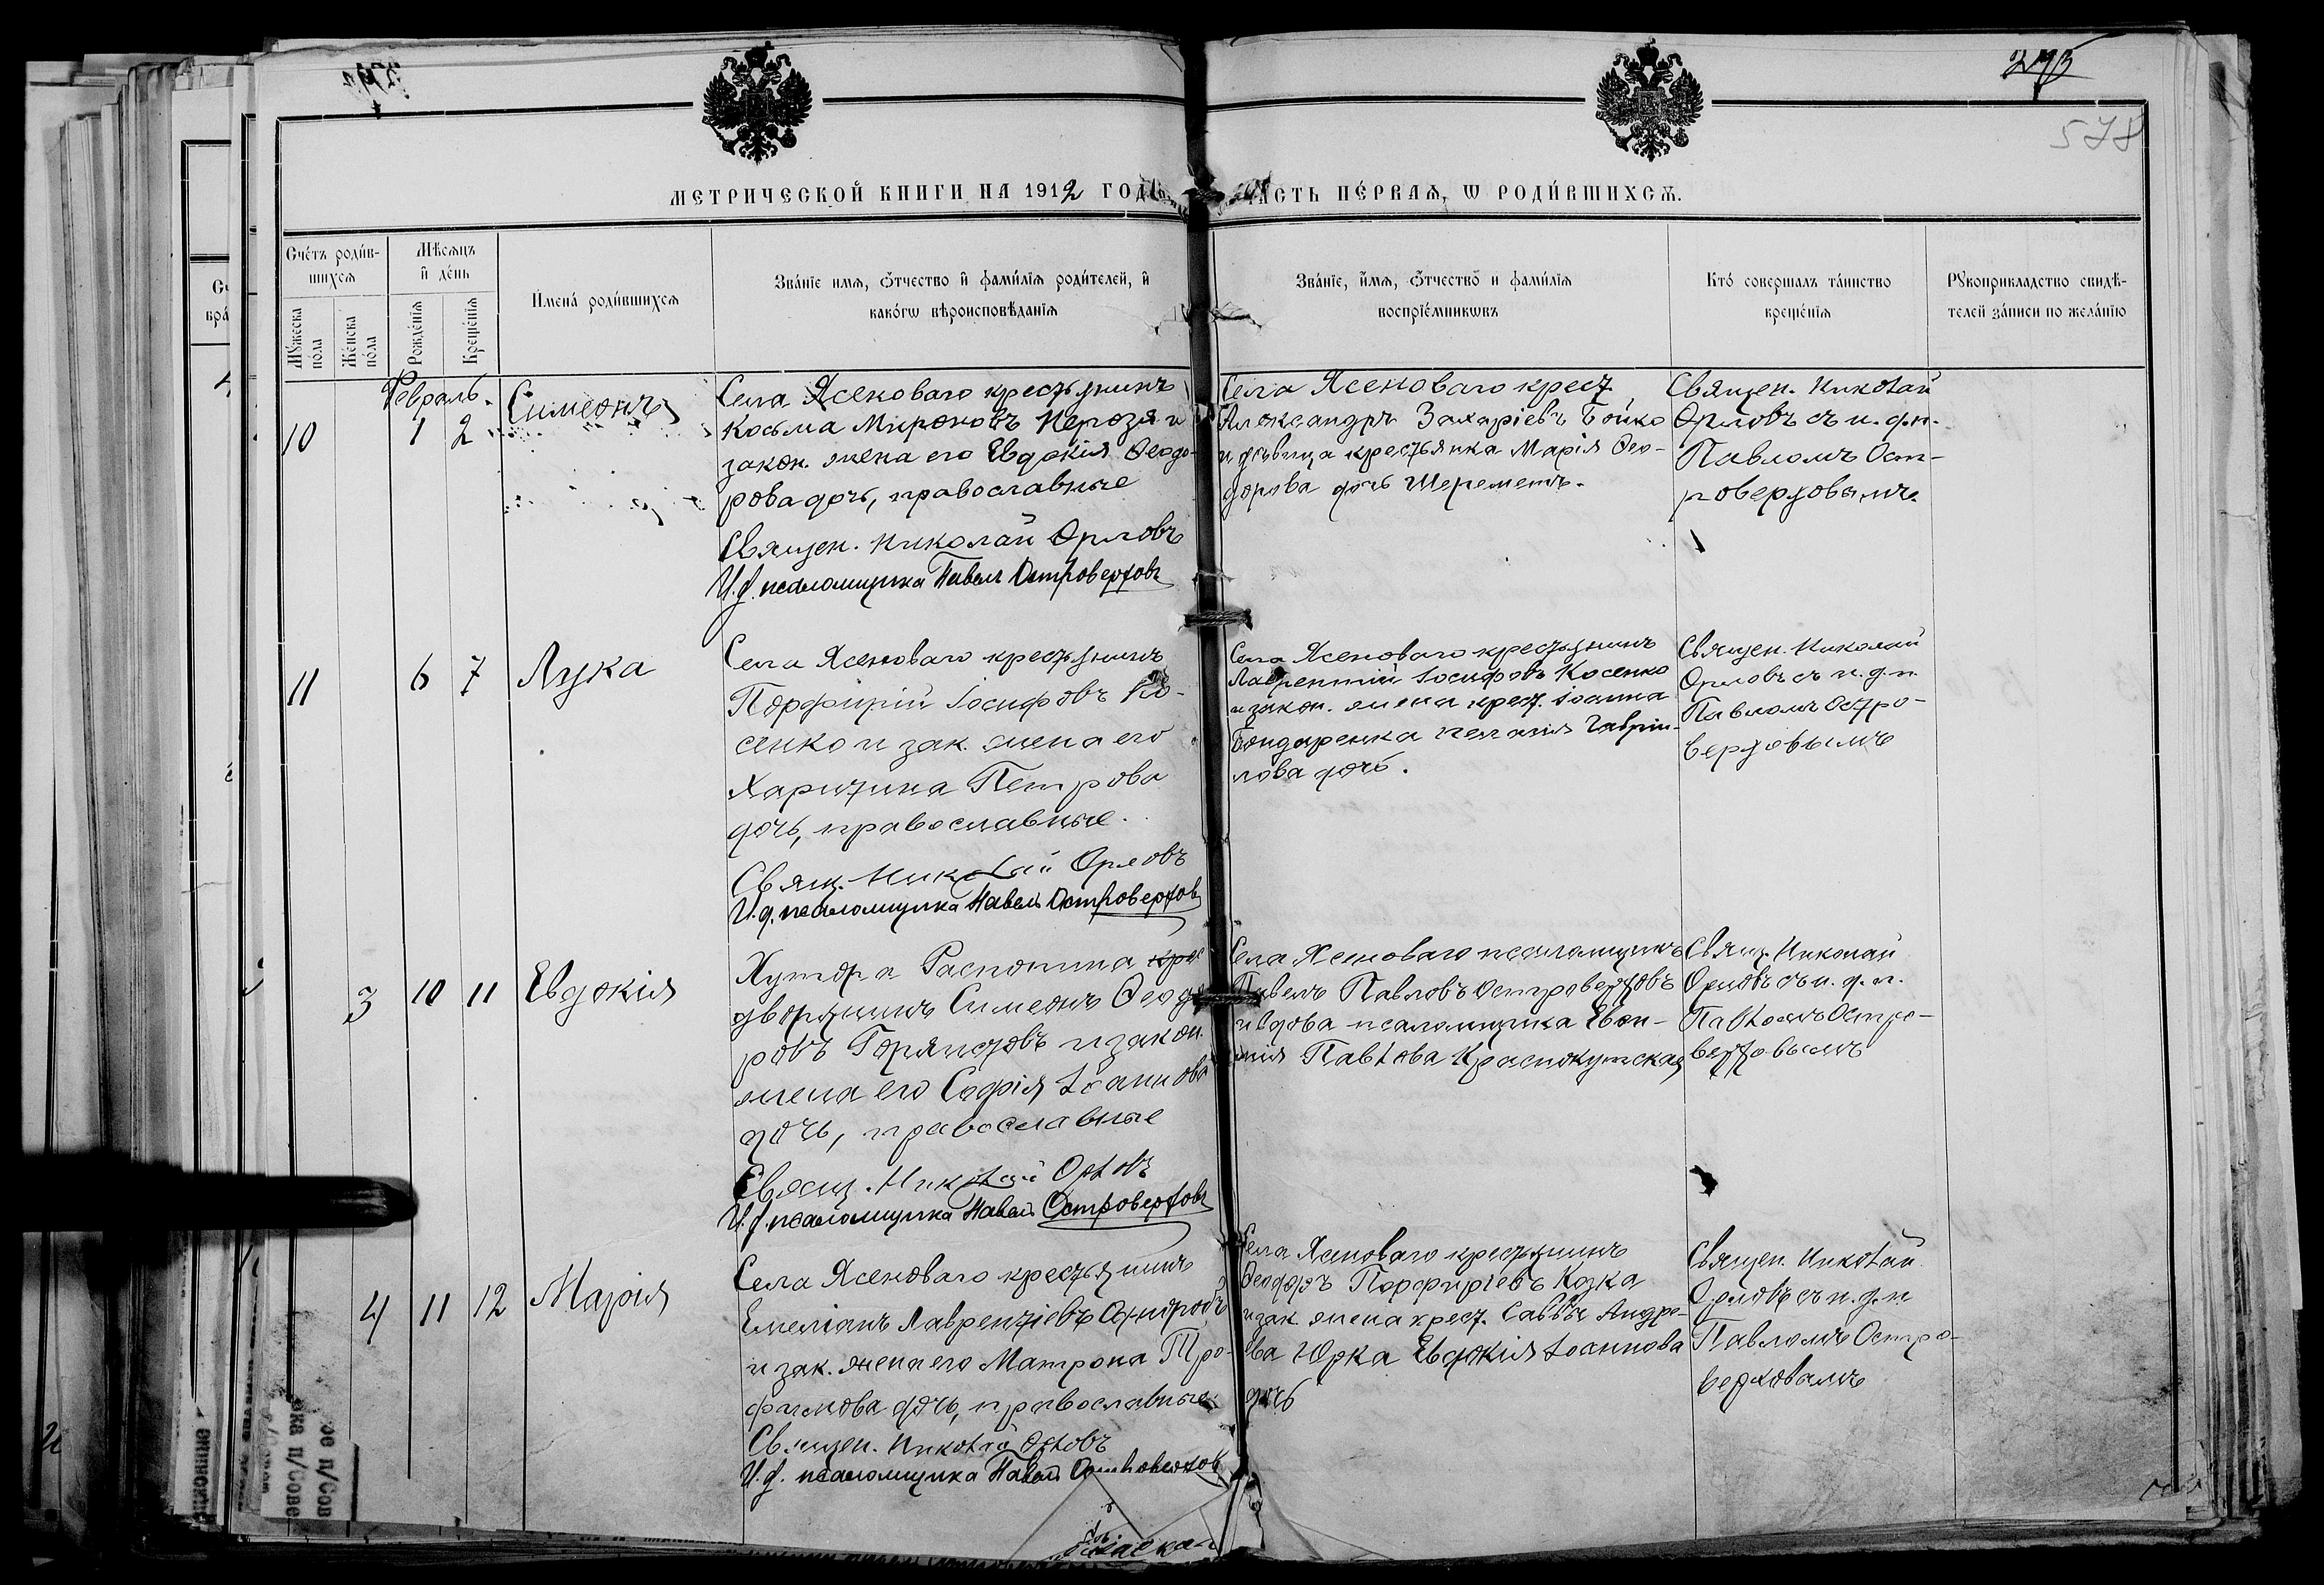 275
578
МЕТРИЧЕСКОЙ КНИГИ НА 1912 ГОДЪ, ЧАСТЬ ПЕ́РВАѦ, Ѡ РОДИ́ВШИХСѦ.
Сче́тъ роди́в-
шихсѧ
Мꙋ́жеска по́ла
Же́нска по́ла
Мѣ́сѧцъ
и҆ де́нь
Рожде́нїѧ
Креще́нїѧ
Имена́ роди́вшихсѧ
Зва́нїе имѧ, ѻ҆́тчество и҆ фами́лїѧ роди́телей, и҆
како́гѡ вѣроисповѣ́данїѧ
Зва́нїе, и҆́мѧ, ѻ҆́тчество и фами́лїѧ
воспрїе́мникѡвъ
Кто́ соверша́лъ та́инство
креще́нїѧ
Рꙋкоприкладство свидѣ́-
телей за́писи по жела́нїю
Февраль.
10
1
2
Симеонъ
Села Ясеноваго крестьянинъ
Косьма Мироновъ и
закон. жена его Евдокія Ѳеодо-
рова дочь, православные
Священ. Николай Орловъ
И.д. псаломщика Павелъ Островерховъ
Села Ясеноваго крест.
Александръ Захаріевъ Бойко
и дѣвица крестьянка Марія Ѳео-
дорова дочь Шереметъ.
Священ. Николай
Орловъ съ и. д. п.
Павломъ Ост-
роверховымъ
11
6
7
Лука
Села Ясеноваго крестьянинъ
Порфирій Іосифовъ Ко-
сенко и зак. жена его
Харитина Петрова
дочь, православные.
Свящ. Николай Орловъ
И.д. псаломщика Павелъ Островерховъ
Села Ясеноваго крестьянинъ
Лаврентій Іосифовъ Косенко
и закон. жена крест. Іоанна
Бондаренка Пелагія Гаврі-
лова дочь.
Священ. Николай
Орловъ съ и. д. п.
Павломъ Остро-
верховымъ
3
10
11
Евдокія
Хутора Распопина
дворянинъ Симеонъ Ѳеодо-
ровъ Горяистовъ и закон.
жена его Софія Іоаннова
дочь, православные
Свящ. Николай Орловъ
И.д. псаломщика Павелъ Островерховъ
Села Ясеноваго псаломщикъ
Павелъ Павловъ Островерховъ
и вдова псаломщика
Павлова Краснокутская
Свящ. Николай
Орловъ съ и. д. п.
Павломъ Остро-
верховымъ
4
11
12
Марія
Села Ясеноваго крестьянинъ
Емеліанъ Лаврентіевъ
и зак. жена его Матрона Тро-
фимова дочь, православные.
Священ. Николай Орловъ
И.д. псаломщика Павелъ Островерховъ
Села Ясеноваго крестьянинъ
Ѳеодоръ Порфиріевъ Козка
и зак. жена крест. Саввы Андре-
ева Юрка Евдокія Іоаннова
дочь
Священ. Николай
Орловъ съ и. д. п.
Павломъ Остро-
верховымъ